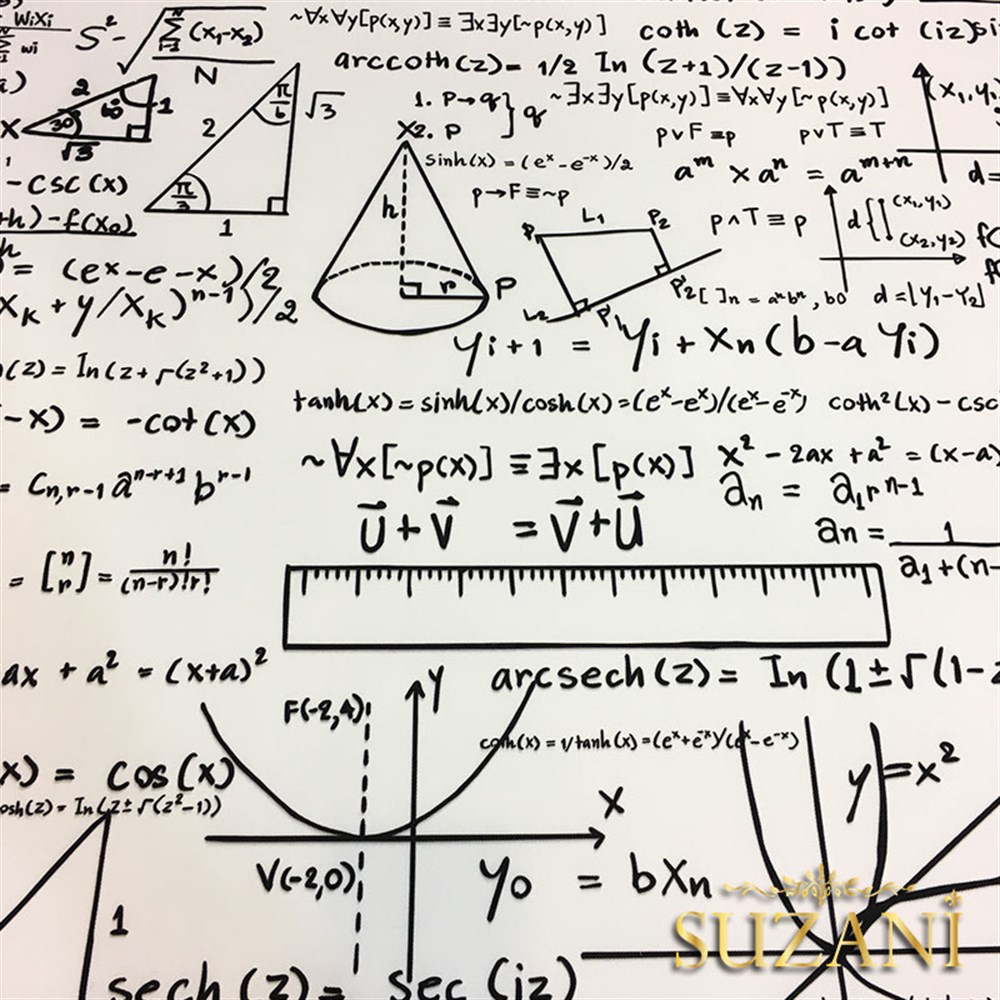 WiXi
wi
S² - √ Σ (x₁-x₂) / N
~∀x∀y[p(x,y)] ≡ ∃x∃y[~p(x,y)]
coth (z) = i cot (iz)
arccoth(z)= 1/2 In (z+1)/(z-1))
2 60° 1
30°
√3
2 π/6 √3
π/3
1
1. P→q } q
2. P
~∃x∃y[p(x,y)] ≡∀x∀y[~p(x,y)]
(x₁,y₁
p∨F ≡p
p∨T≡T
sinh(x) = (eˣ-e⁻ˣ)/2
aᵐ × aⁿ = aᵐ⁺ⁿ
d=
-csc(x)
p→F≡~p
h r P
L₁ P₂
p∧T≡p
d{[ (x₁,y₁)
(x₂,y₂)
+h)-f(x₀)
h
= (ex-e-x)/2
L₂ P'₁
P'₂
[ ]n = aⁿbⁿ, b0
d=|Y₁-Y₂|
xₖ + y/xₖ)ⁿ⁻¹)/2
yi+1 = yi + xn(b-a yi)
(z) = In(z+√(z²+1))
tanh(x) = sinh(x)/cosh(x) =(eˣ-e⁻ˣ)/(eˣ-e⁻ˣ)
coth²(x) - csc
-x) = -cot(x)
~∀x[~p(x)] ≡∃x[p(x)]
x² - 2ax + a² = (x-a)
= Cn,r-1 aⁿ⁻ʳ⁺¹ bʳ⁻¹
an = a₁rⁿ⁻¹
u⃗ + v⃗ = v⃗ + u⃗
an = 1
a₁+(n-
= [n r] = n! / (n-r)!r!
ax + a² = (x+a)²
Y
arcsech(z) = In (1±√(1-z
F(-2,4)
coth(x) = 1/tanh(x) =(eˣ+e⁻ˣ)/(eˣ-e⁻ˣ)
x) = cos(x)
osh(z) = In(z±√(z²-1))
y=x²
X
V(-2,0)
y₀ = bxn
1
SUZANİ
sech(z)= sec(iz)